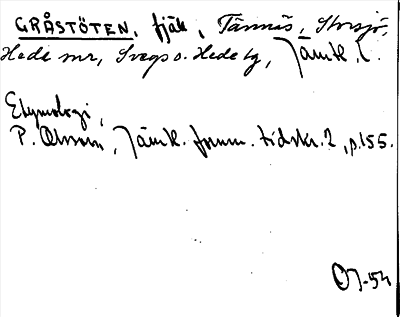 GRÅSTÖTEN, fjäll, Tännäs, Storsjö,
Hede snr, Svegs o. Hede tg, Jämtl. l.
Etymologi,
P. Olsson, Jämtl. fornm. tidskr. 2, p. 155.
OJ-54